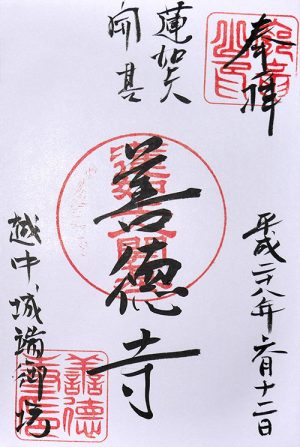 奉拝
蓮如上人
開基
善徳寺
平成二十八年六月十二日
越中、城端御坊